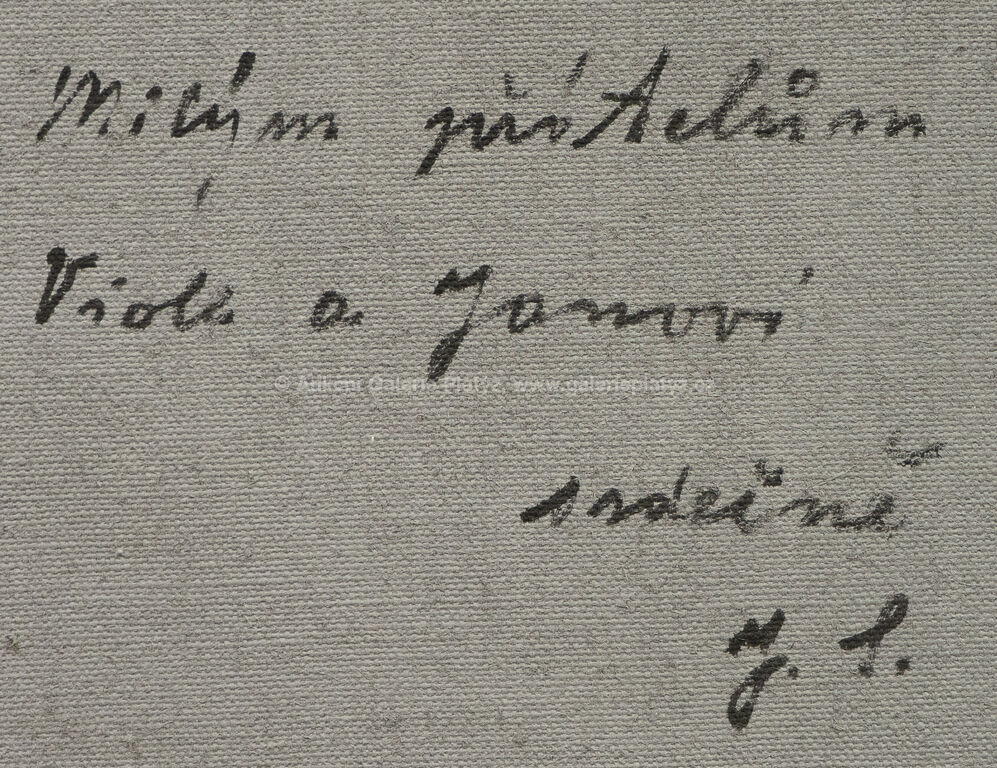 Milým přátelům
Viole a Janovi
© Aukční Galerie Platýz, www.galerieplatyz.cz
srdečně
J. S.